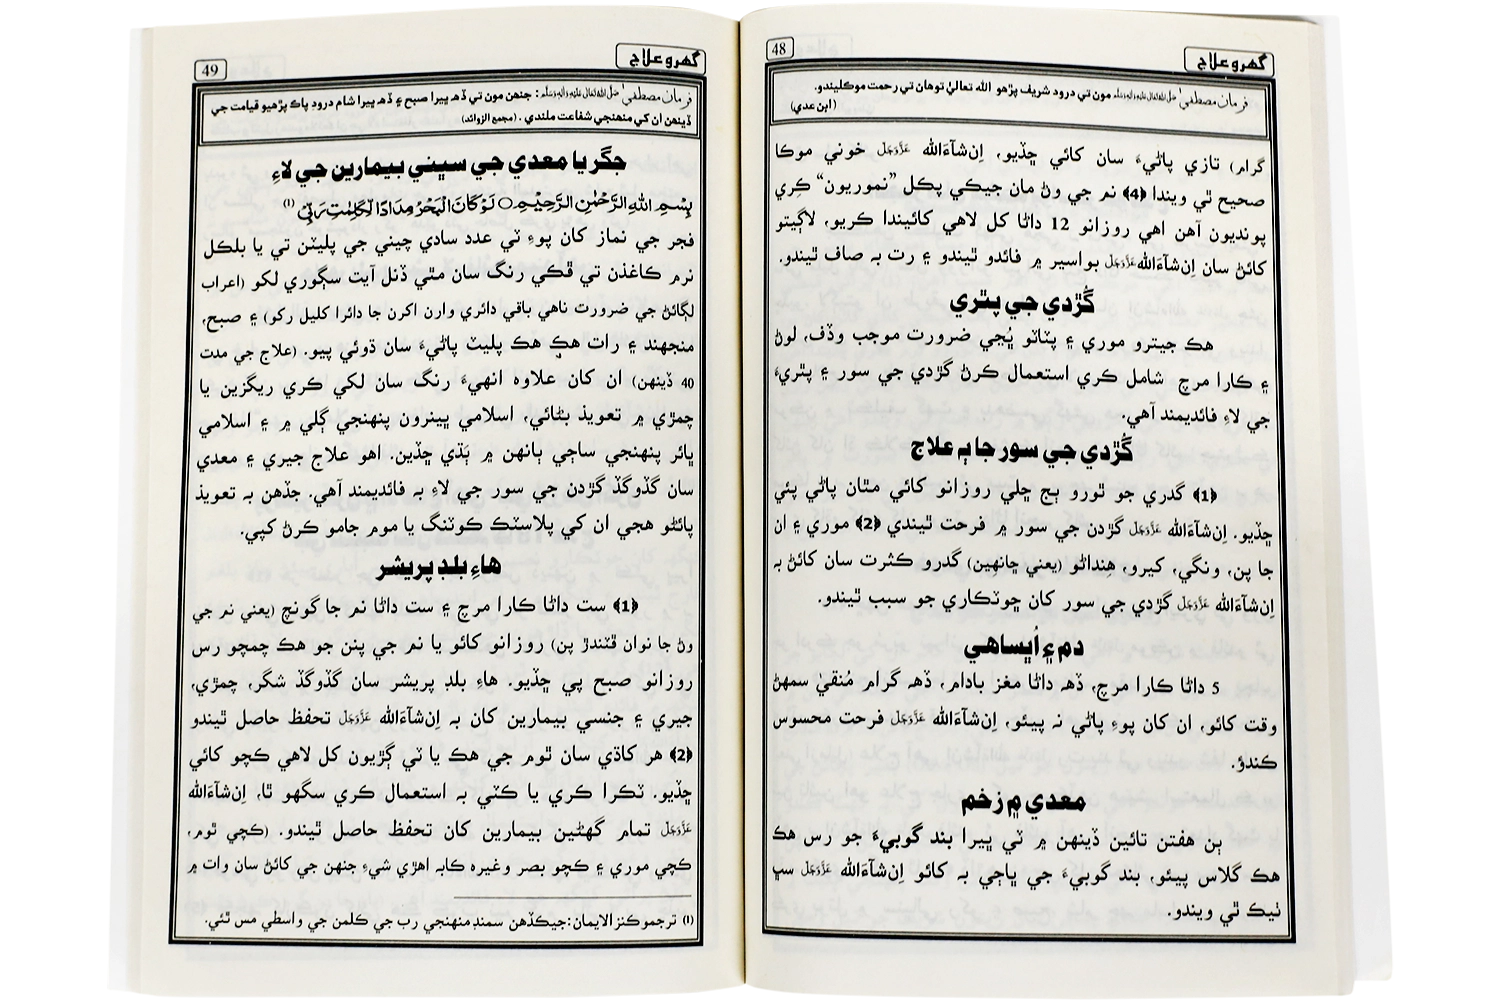 گھرو علاج
48
فرمانِ مصطفيٰ صلى الله تعالى عليه واٰلہٖ وسلم مون تي درود شريف پڙهو الله تعاليٰ توهان تي رحمت موڪليندو.
(ابن عدي)
گرام) تازي پاڻيءَ سان کائي ڇڏيو، اِن‌شآءَالله عَزَّوَجَلَّ خوني موڪا
صحيح ٿي ويندا ﴿4﴾ نم جي وڻ مان جيڪي پڪل ”نموريون“ ڪِري
پونديون آهن اهي روزانو 12 داڻا کل لاهي کائيندا ڪريو، لاڳيتو
کائڻ سان اِن‌شآءَالله عَزَّوَجَلَّ بواسير ۾ فائدو ٿيندو ۽ رت بہ صاف ٿيندو.
گُڙدي جي پٿري
هڪ جيترو موري ۽ پٽاٽو ڀُڃي ضرورت موجب وڌف، لوڻ
۽ ڪارا مرچ شامل ڪري استعمال ڪرڻ گڙدي جي سور ۽ پٿريءَ
جي لاءِ فائديمند آهي.
گُڙدي جي سور جا ٻہ علاج
﴿1﴾ گدري جو ٿورو ٻج ڇلي روزانو کائي مٿان پاڻي پئي
ڇڏيو. اِن‌شآءَالله عَزَّوَجَلَّ گڙدن جي سور ۾ فرحت ٿيندي ﴿2﴾ موري ۽ ان
جا پن، ونگي، کيرو، هِنداڻو (يعني ڇانهين) گدرو ڪثرت سان کائڻ بہ
اِن‌شآءَالله عَزَّوَجَلَّ گڙدي جي سور کان ڇوٽڪاري جو سبب ٿيندو.
دم ۽ اُڀساهي
5 داڻا ڪارا مرچ، ڏهہ داڻا مغز بادام، ڏهہ گرام مُنقيٰ سمهڻ
وقت کائو، ان کان پوءِ پاڻي نہ پيئو، اِن‌شآءَالله عَزَّوَجَلَّ فرحت محسوس
ڪندؤ.
معدي ۾ زخم
ٻن هفتن تائين ڏينهن ۾ ٽي ڀيرا بند گوبيءَ جو رس هڪ
هڪ گلاس پيئو، بند گوبيءَ جي ڀاڄي بہ کائو اِن‌شآءَالله عَزَّوَجَلَّ سڀ
ٺيڪ ٿي ويندو.
گھرو علاج
49
فرمانِ مصطفيٰ صلى الله تعالى عليه واٰلہٖ وسلم: جنهن مون تي ڏهہ ڀيرا صبح ۽ ڏهہ ڀيرا شام درود پاڪ پڙهيو قيامت جي
ڏينهن ان کي منهنجي شفاعت ملندي. (مجمع الزوائد)
جگر يا معدي جي سڀني بيمارين جي لاءِ
بِسْمِ اللهِ الرَّحْمٰنِ الرَّحِيْمِ ○ لَوْ كَانَ الْبَحْرُ مِدَادًا لِّكَلِمٰتِ رَبِّيْ (۱)
فجر جي نماز کان پوءِ ٽي عدد سادي چيني جي پليٽن تي يا بلڪل
نرم ڪاغذن تي ڦڪي رنگ سان مٿي ڏنل آيت سڳوري لکو (اعراب
لڳائڻ جي ضرورت ناهي باقي دائري وارن اکرن جا دائرا کليل رکو) ۽ صبح،
منجهند ۽ رات هڪ هڪ پليٽ پاڻيءَ سان ڌوئي پيو. (علاج جي مدت
40 ڏينهن) ان کان علاوه انهيءَ رنگ سان لکي ڪري ريگزين يا
چمڙي ۾ تعويذ بڻائي، اسلامي ڀينرون پنهنجي ڳلي ۾ ۽ اسلامي
ڀائر پنهنجي ساڄي ٻانهن ۾ ٻَڌي ڇڏين. اهو علاج جيري ۽ معدي
سان گڏوگڏ گڙدن جي سور جي لاءِ بہ فائديمند آهي. جڏهن بہ تعويذ
پائڻو هجي ان کي پلاسٽڪ ڪوٽنگ يا موم جامو ڪرڻ کپي.
هاءِ بلڊ پريشر
﴿1﴾ ست داڻا ڪارا مرچ ۽ ست داڻا نم جا گونچ (يعني نم جي
وڻ جا نوان ڦٽندڙ پن) روزانو کائو يا نم جي پنن جو هڪ چمچو رس
روزانو صبح پي ڇڏيو. هاءِ بلڊ پريشر سان گڏوگڏ شگر، چمڙي،
جيري ۽ جنسي بيمارين کان بہ اِن‌شآءَالله عَزَّوَجَلَّ تحفظ حاصل ٿيندو
﴿2﴾ هر کاڌي سان ٿوم جي هڪ يا ٽي ڳڙيون کل لاهي ڪچو کائي
ڇڏيو. ٽڪرا ڪري يا ڪٽي بہ استعمال ڪري سگهو ٿا، اِن‌شآءَالله
عَزَّوَجَلَّ تمام گهڻين بيمارين کان تحفظ حاصل ٿيندو. (ڪچي ٿوم،
ڪچي موري ۽ ڪچو بصر وغيره ڪابہ اهڙي شيءِ جنهن جي کائڻ سان وات ۾
(۱) ترجمو ڪنز الايمان: جيڪڏهن سمنڊ منهنجي رب جي ڪلمن جي واسطي مس ٿئي.